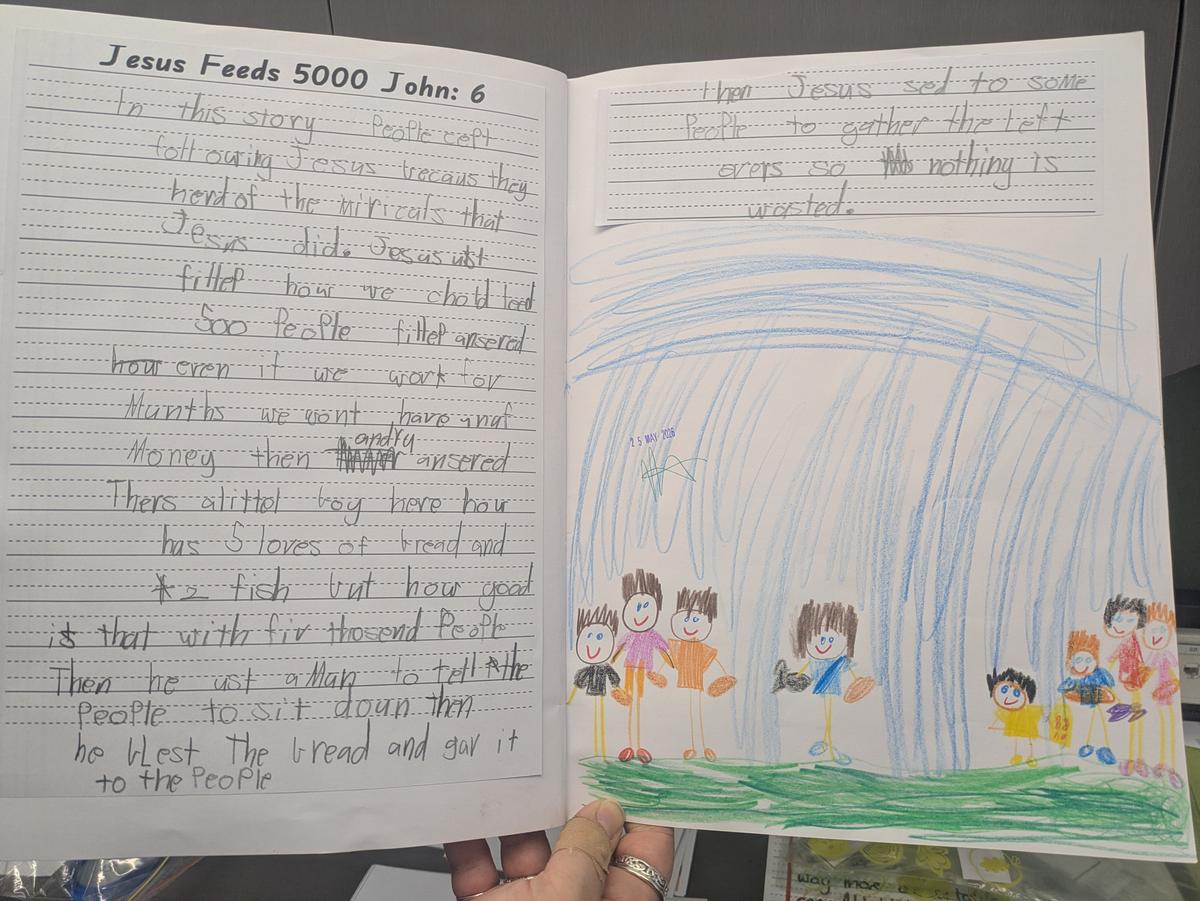 Jesus Feeds 5000 John: 6
In this story People cept
follouring Jesus becaus they
herd of the miricals that
Jesus did. Jesus ust
fillep hour we chold feed
500 People fillep ansered
hour even if we work for
Munths we wont have anaf
Money then andry ansered
Thers a littol boy here hour
has 5 loves of bread and
2 fish but how good
is that with fiv thosend People
Then he ust a Man to tell the
People to sit doun then
he blest The bread and gav it
to the People
then Jesus sed to some
People to gather the left
overs so nothing is
wasted.
25 MAY 2026
way more